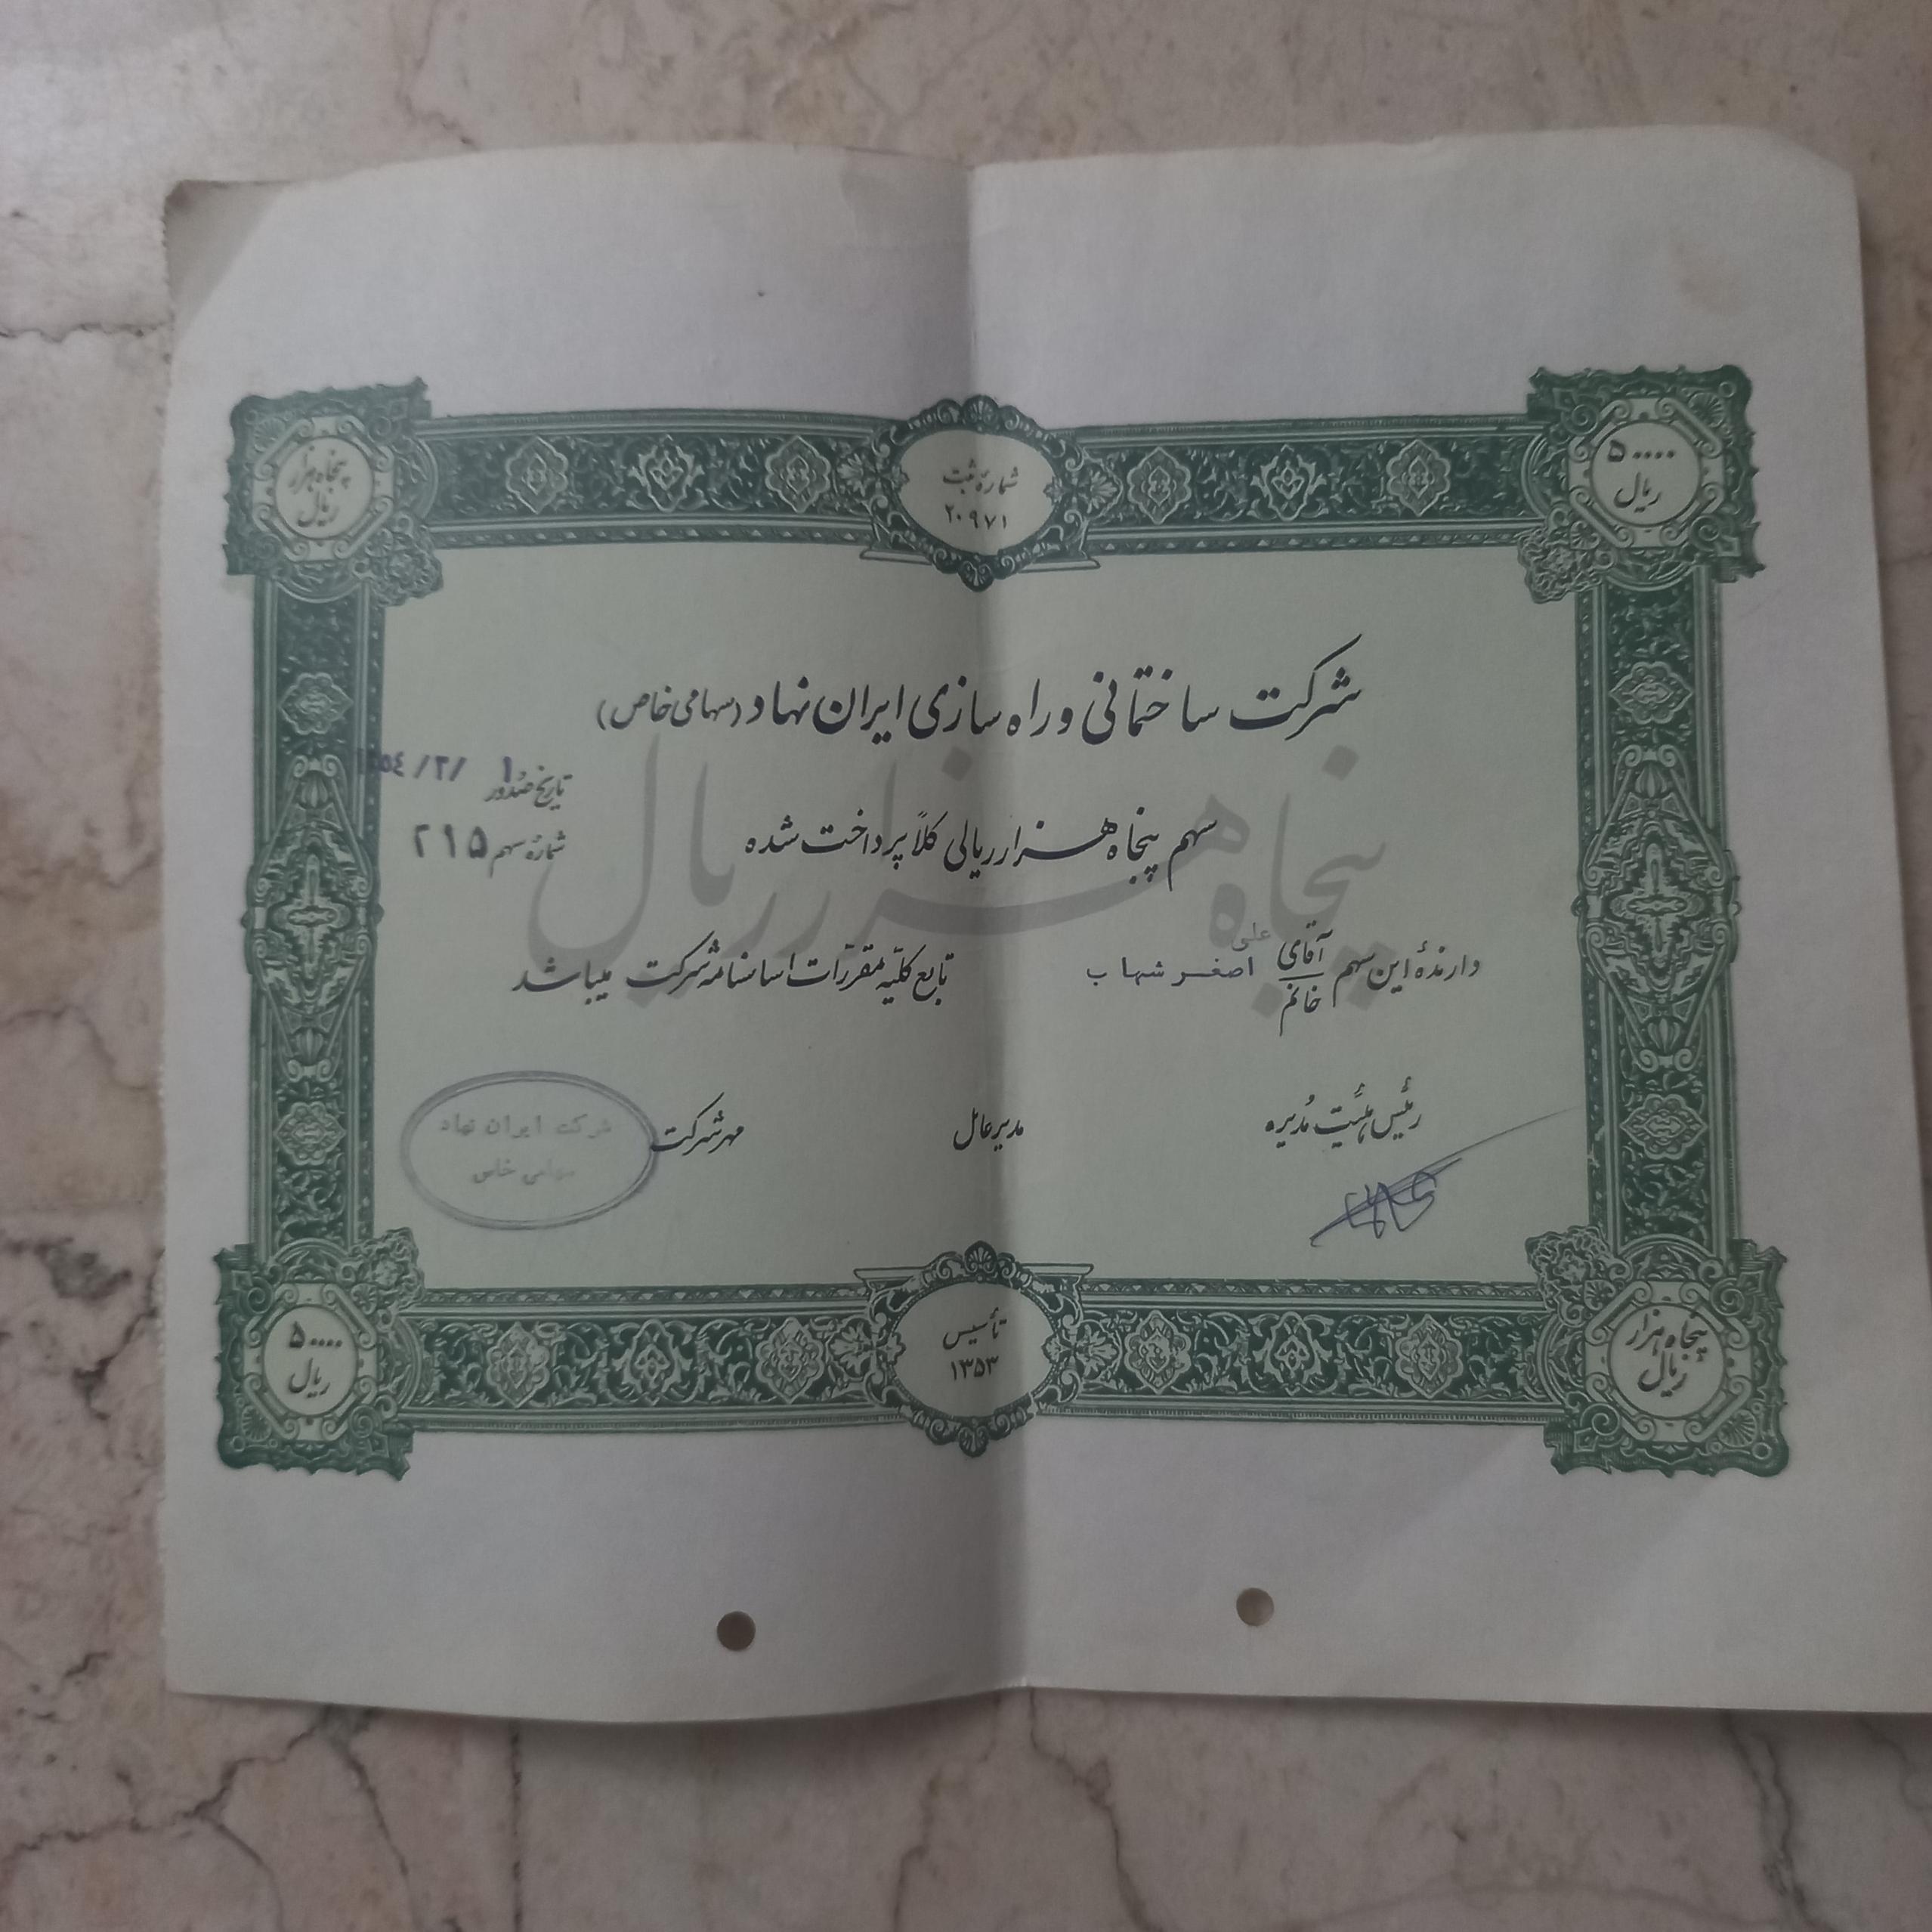 ۵۰۰۰۰
ریال
شماره ثبت
۲۰۹۷۱
پنجاه هزار
ریال
شرکت ساختمانی و راه سازی ایران نهاد (سهامی خاص)
تاریخ صدور ۱ /۲/ ۱۳۵٤
سهم پنجاه هزار ریالی کلاً پرداخت شده
شماره سهم ۲۱۵
پنجاه هزار ریال
دارندهٔ این سهم آقای / خانم علی اصغر شهاب تابع کلیه مقررات اساسنامه شرکت میباشد
رئیس هیئت مدیره
مدیرعامل
مهر شرکت
شرکت ایران نهاد
سهامی خاص
پنجاه هزار
ریال
تأسیس
۱۳۵۳
۵۰۰۰۰
ریال